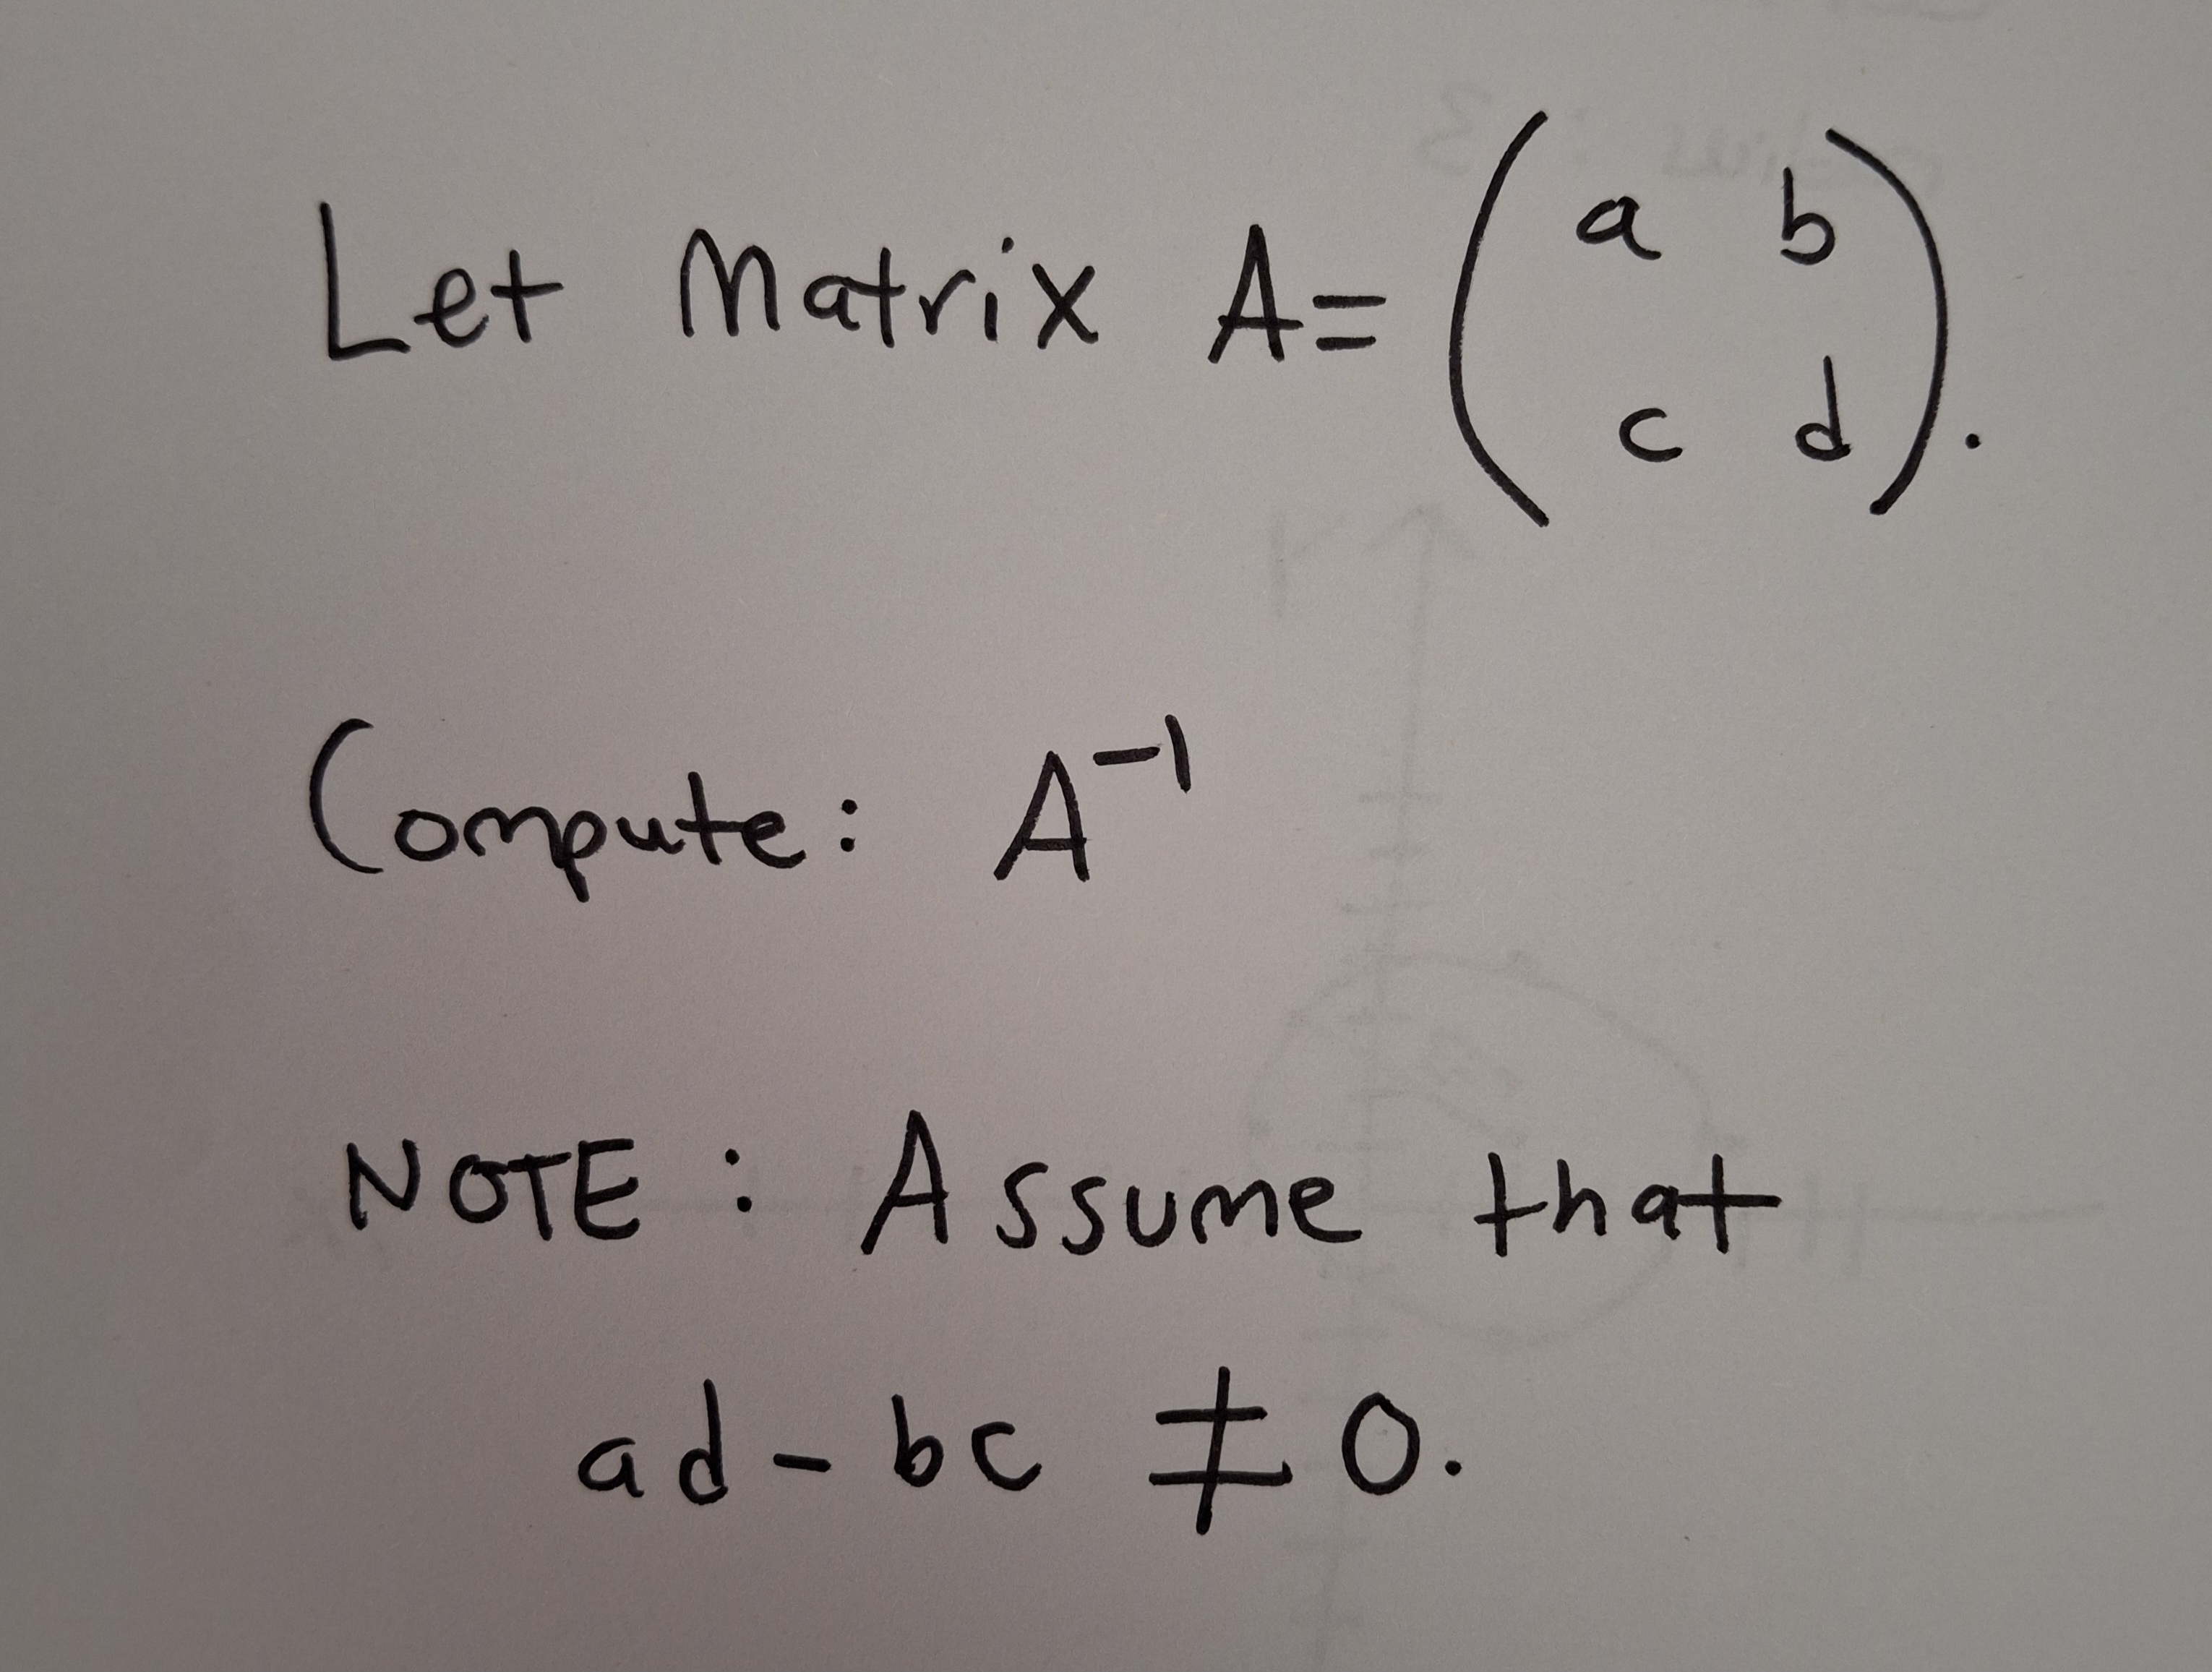 Let Matrix A= ( a b
c d ).
Compute: A⁻¹
NOTE : Assume that
ad - bc ≠ 0.